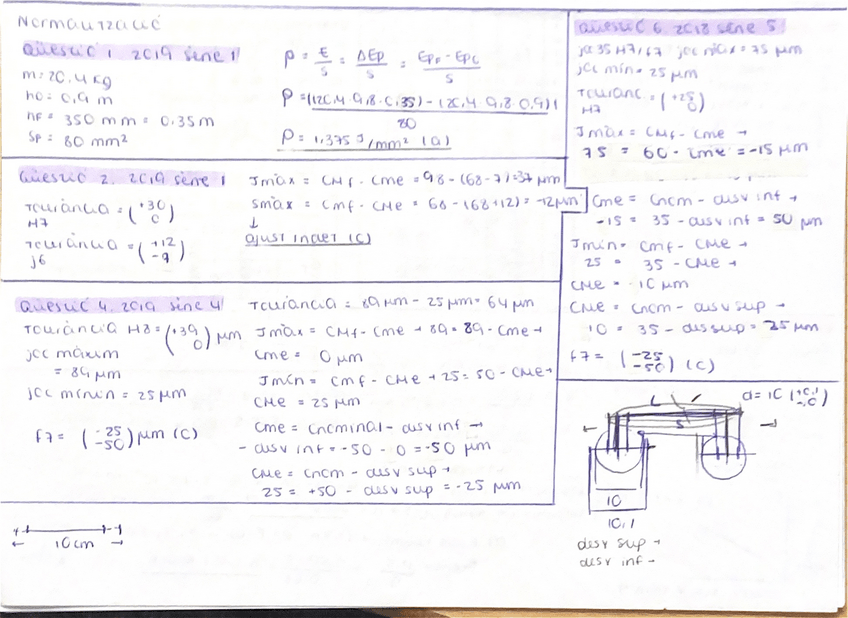 Normalització
Qüestió 1. 2019 sèrie 1
m = 20,4 kg
h0 = 0,9 m
hf = 350 mm = 0,35 m
Sp = 80 mm²
ρ = E/S = ΔEp/S = Epf - Epo/S
80
ρ = 1,375 J/mm² (a)
Qüestió 2. 2019 sèrie 1
Tolerància H7 = (+30 0)
Tolerància j6 = (+12 -9)
Jmàx = CMf - Cme = 98 - (68-7) = 37 μm
Smàx = Cmf - CMe = 68 - (68+12) = -12 μm
↓
ajust indet (c)
Qüestió 4. 2019 sèrie 4
Tolerància H8 = (+39 0) μm
joc màxim
= 89 μm
joc mínim = 25 μm
f7 = (-25 -50) μm (c)
Tolerància = 89 μm - 25 μm = 64 μm
Jmàx = CMf - Cme → 89 = 89 - Cme →
Cme = 0 μm
Jmín = Cmf - CMe → 25 = 50 - CMe →
CMe = 25 μm
Cme = Cnominal - desv inf →
- desv inf = -50 - 0 = -50 μm
CMe = Cnom - desv sup →
25 = +50 - desv sup = -25 μm
10 cm
Qüestió 6. 2018 sèrie 5
35 H7/f7 joc màx = 75 μm
joc mín = 25 μm
Toleranc H7 = (+25 0)
Jmàx = CMf - Cme →
75 = 60 - Cme = -15 μm
Cme = Cnom - desv inf →
-15 = 35 - desv inf = 50 μm
Jmín = Cmf - CMe →
25 = 35 - CMe →
CMe = 10 μm
CMe = Cnom - desv sup →
10 = 35 - des sup = 25 μm
f7 = (-25 -50) (c)
L
S
d = 10 (+0,1 -0)
10
10,1
desv sup →
desv inf -